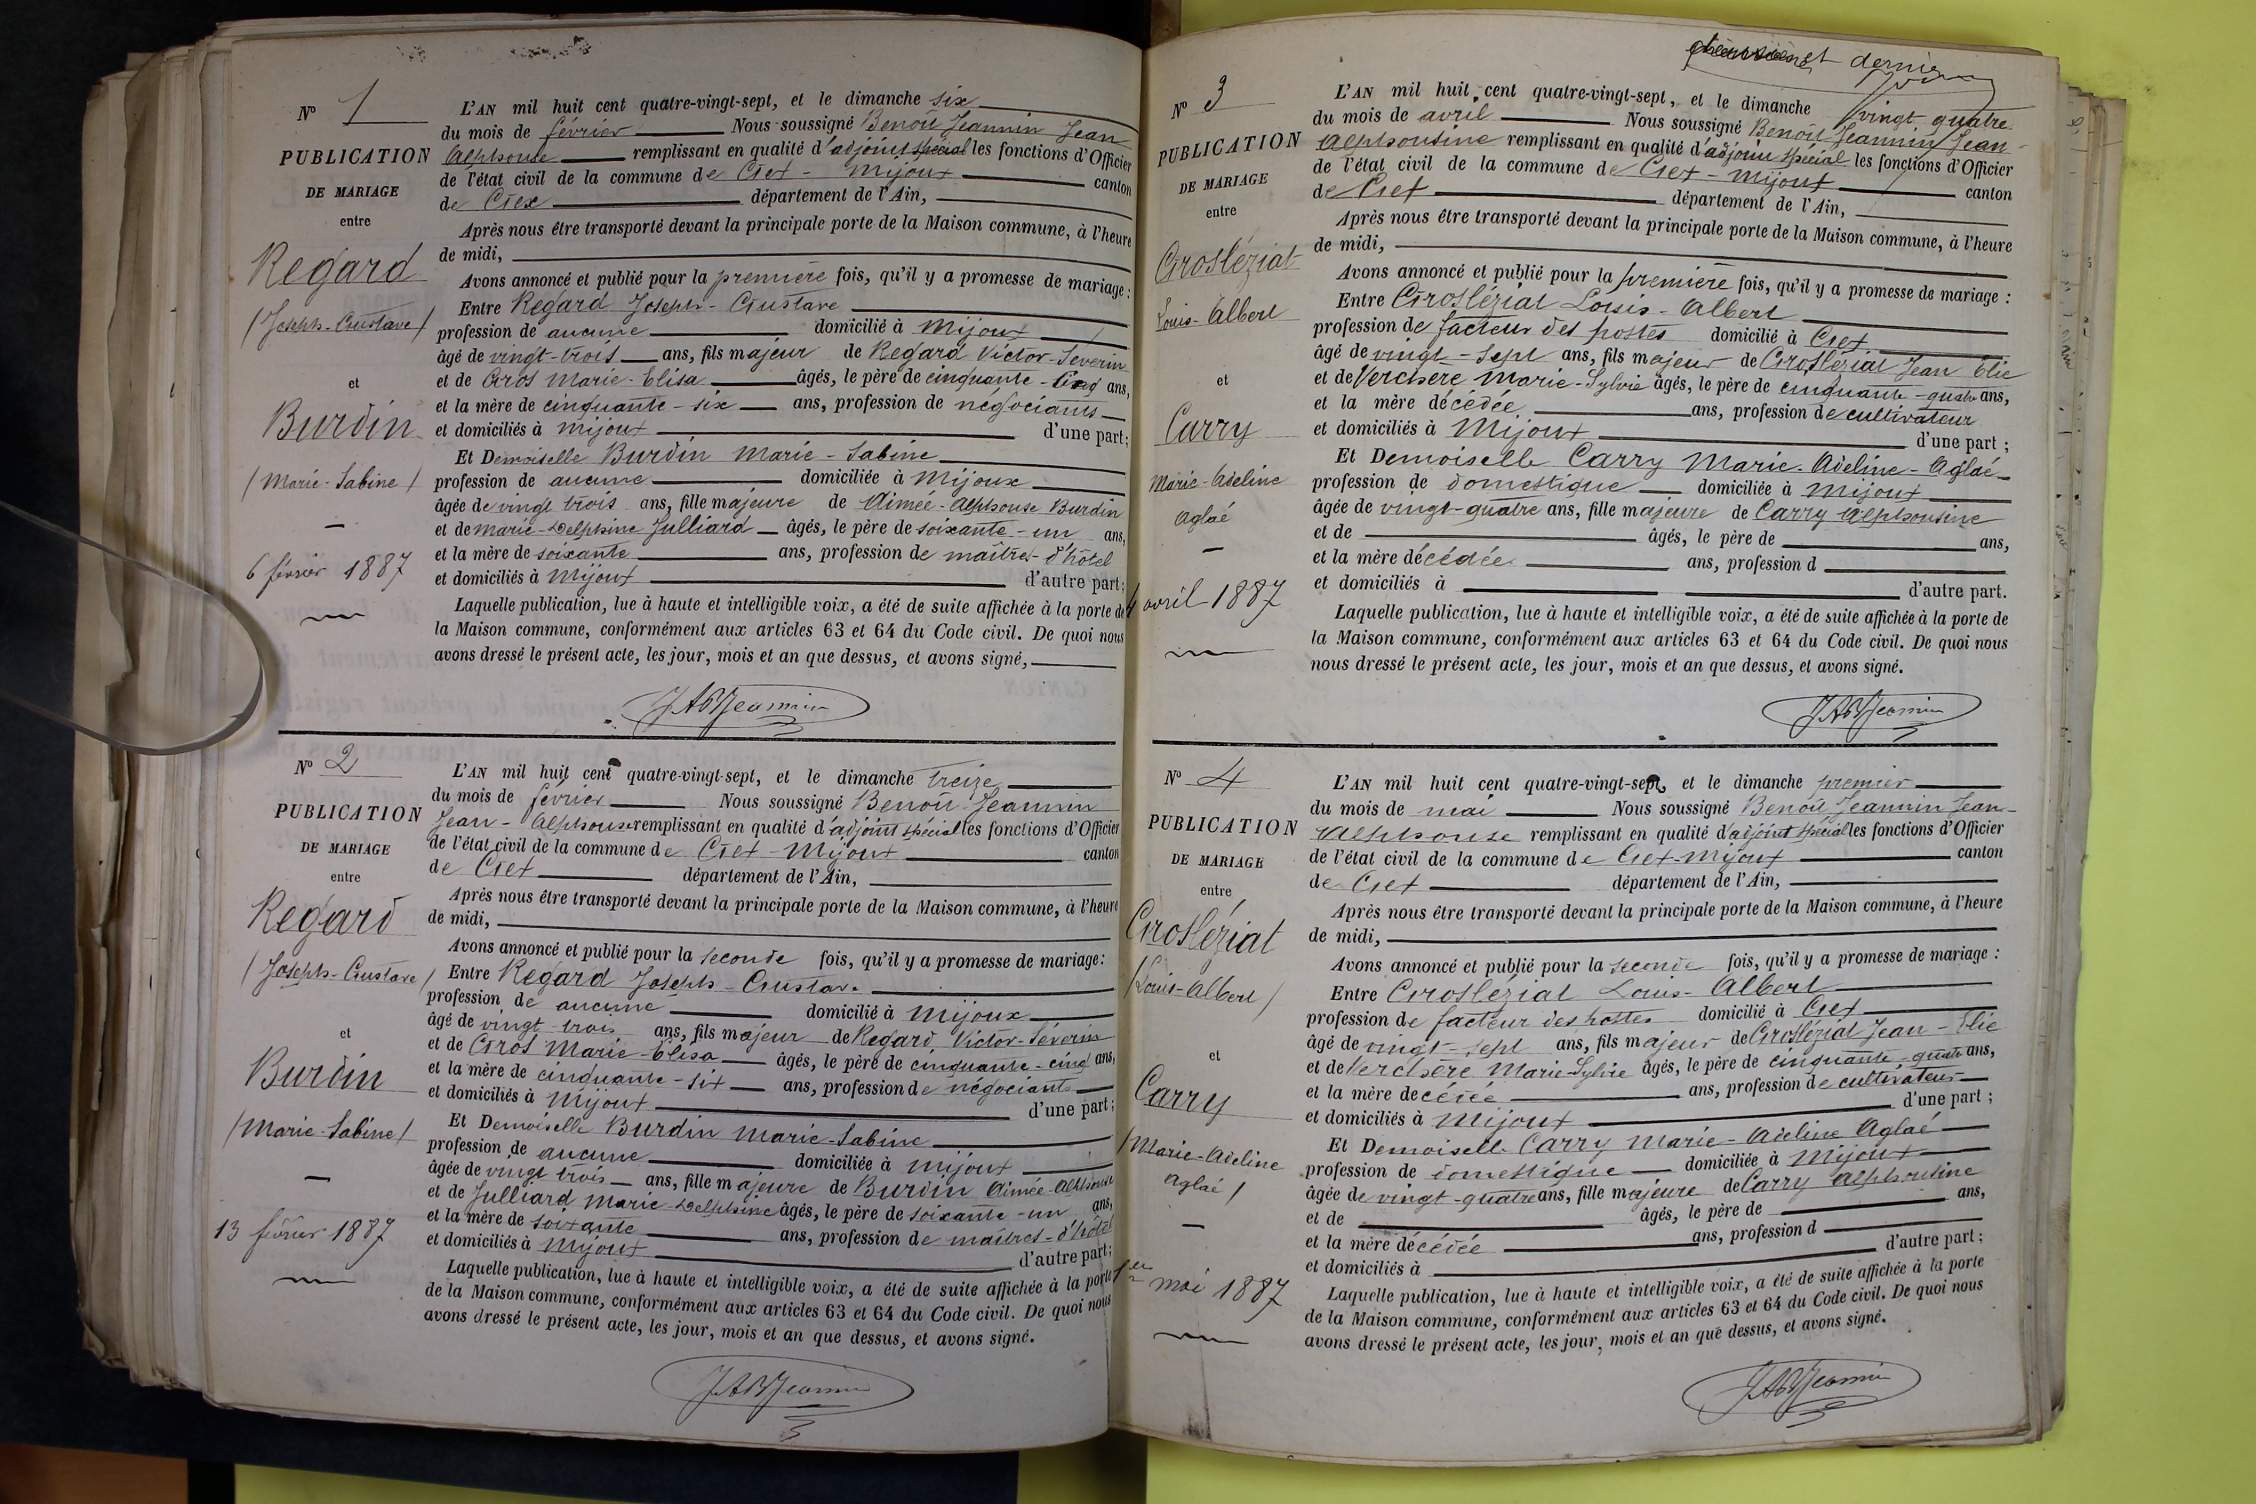 N° 1
PUBLICATION
DE MARIAGE
entre
Regard
(Joseph-Gustave)
et
Burdin
(Marie-Sabine)
6 février 1887
L'AN mil huit cent quatre-vingt-sept, et le dimanche six
du mois de février Nous soussigné Benoit Jeannin Jean
Alphonse remplissant en qualité d'adjoint spécial les fonctions d'Officier
de l'état civil de la commune de Gex-Mijoux canton
de Gex département de l'Ain,
Après nous être transporté devant la principale porte de la Maison commune, à l'heure
de midi,
Avons annoncé et publié pour la première fois, qu'il y a promesse de mariage :
Entre Regard Joseph-Gustave
profession de aucune domicilié à Mijoux
âgé de vingt-trois ans, fils majeur de Regard Victor-Séverin
et de Gros Marie-Elisa âgés, le père de cinquante-cinq ans,
et la mère de cinquante-six ans, profession de négociants
et domiciliés à Mijoux d'une part;
Et Demoiselle Burdin Marie-Sabine
profession de aucune domiciliée à Mijoux
âgée de vingt trois ans, fille majeure de Aimée-Alphonse Burdin
et de Marie-Delphine Julliard âgés, le père de soixante-un ans,
et la mère de soixante ans, profession de maîtres-d'hôtel
et domiciliés à Mijoux d'autre part;
Laquelle publication, lue à haute et intelligible voix, a été de suite affichée à la porte de
la Maison commune, conformément aux articles 63 et 64 du Code civil. De quoi nous
avons dressé le présent acte, les jour, mois et an que dessus, et avons signé,
JABJeannin
N° 2
PUBLICATION
DE MARIAGE
entre
Regard
(Joseph-Gustave)
et
Burdin
(Marie-Sabine)
13 février 1887
L'AN mil huit cent quatre-vingt-sept, et le dimanche treize
du mois de février Nous soussigné Benoit Jeannin
Jean-Alphonse remplissant en qualité d'adjoint spécial les fonctions d'Officier
de l'état civil de la commune de Gex-Mijoux canton
de Gex département de l'Ain,
Après nous être transporté devant la principale porte de la Maison commune, à l'heure
de midi,
Avons annoncé et publié pour la seconde fois, qu'il y a promesse de mariage:
Entre Regard Joseph-Gustave
profession de aucune domicilié à Mijoux
âgé de vingt-trois ans, fils majeur de Regard Victor-Séverin
et de Gros Marie-Elisa âgés, le père de cinquante-cinq ans,
et la mère de cinquante-six ans, profession de négociants
et domiciliés à Mijoux d'une part;
Et Demoiselle Burdin Marie-Sabine
profession de aucune domiciliée à Mijoux
âgée de vingt trois ans, fille majeure de Burdin Aimée-Alphonse
et de Julliard Marie-Delphine âgés, le père de soixante-un ans,
et la mère de soixante ans, profession de maîtres-d'hôtel
et domiciliés à Mijoux d'autre part;
Laquelle publication, lue à haute et intelligible voix, a été de suite affichée à la porte
de la Maison commune, conformément aux articles 63 et 64 du Code civil. De quoi nous
avons dressé le présent acte, les jour, mois et an que dessus, et avons signé.
JABJeannin
et dernier
N° 3
PUBLICATION
DE MARIAGE
entre
Grosléziat
Louis-Albert
et
Carry
Marie-Adeline
Aglaé
avril 1887
L'AN mil huit cent quatre-vingt-sept, et le dimanche vingt quatre
du mois de avril Nous soussigné Benoit Jeannin Jean-
Alphonsine remplissant en qualité d'adjoint spécial les fonctions d'Officier
de l'état civil de la commune de Gex-Mijoux canton
de Gex département de l'Ain,
Après nous être transporté devant la principale porte de la Maison commune, à l'heure
de midi,
Avons annoncé et publié pour la première fois, qu'il y a promesse de mariage :
Entre Grosléziat Louis-Albert
profession de facteur des postes domicilié à Gex
âgé de vingt-sept ans, fils majeur de Grosléziat Jean Elie
et de Verchère Marie-Sylvie âgés, le père de cinquante-quatre ans,
et la mère décédée ans, profession de cultivateur
et domiciliés à Mijoux d'une part ;
Et Demoiselle Carry Marie-Adeline-Aglaé
profession de domestique domiciliée à Mijoux
âgée de vingt-quatre ans, fille majeure de Carry Alphonsine
et de âgés, le père de ans,
et la mère décédée ans, profession d
et domiciliés à d'autre part.
Laquelle publication, lue à haute et intelligible voix, a été de suite affichée à la porte de
la Maison commune, conformément aux articles 63 et 64 du Code civil. De quoi nous
nous dressé le présent acte, les jour, mois et an que dessus, et avons signé.
JABJeannin
N° 4
PUBLICATION
DE MARIAGE
entre
Grosléziat
(Louis-Albert)
et
Carry
(Marie-Adeline
Aglaé)
1er mai 1887
L'AN mil huit cent quatre-vingt-sept, et le dimanche premier
du mois de mai Nous soussigné Benoit Jeannin Jean-
Alphonse remplissant en qualité d'adjoint spécial les fonctions d'Officier
de l'état civil de la commune de Gex-Mijoux canton
de Gex département de l'Ain,
Après nous être transporté devant la principale porte de la Maison commune, à l'heure
de midi,
Avons annoncé et publié pour la seconde fois, qu'il y a promesse de mariage :
Entre Grosléziat Louis-Albert
profession de facteur des postes domicilié à Gex
âgé de vingt-sept ans, fils majeur de Grosléziat Jean-Elie
et de Verchère Marie-Sylvie âgés, le père de cinquante-quatre ans,
et la mère décédée ans, profession de cultivateur
et domiciliés à Mijoux d'une part ;
Et Demoiselle Carry Marie-Adeline Aglaé
profession de domestique domiciliée à Mijoux
âgée de vingt-quatre ans, fille majeure de Carry Alphonsine
et de âgés, le père de ans,
et la mère décédée ans, profession d
et domiciliés à d'autre part;
Laquelle publication, lue à haute et intelligible voix, a été de suite affichée à la porte
de la Maison commune, conformément aux articles 63 et 64 du Code civil. De quoi nous
avons dressé le présent acte, les jour, mois et an que dessus, et avons signé.
JABJeannin